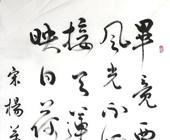 畢竟西
風光不
接天蓮
映日荷
宋楊